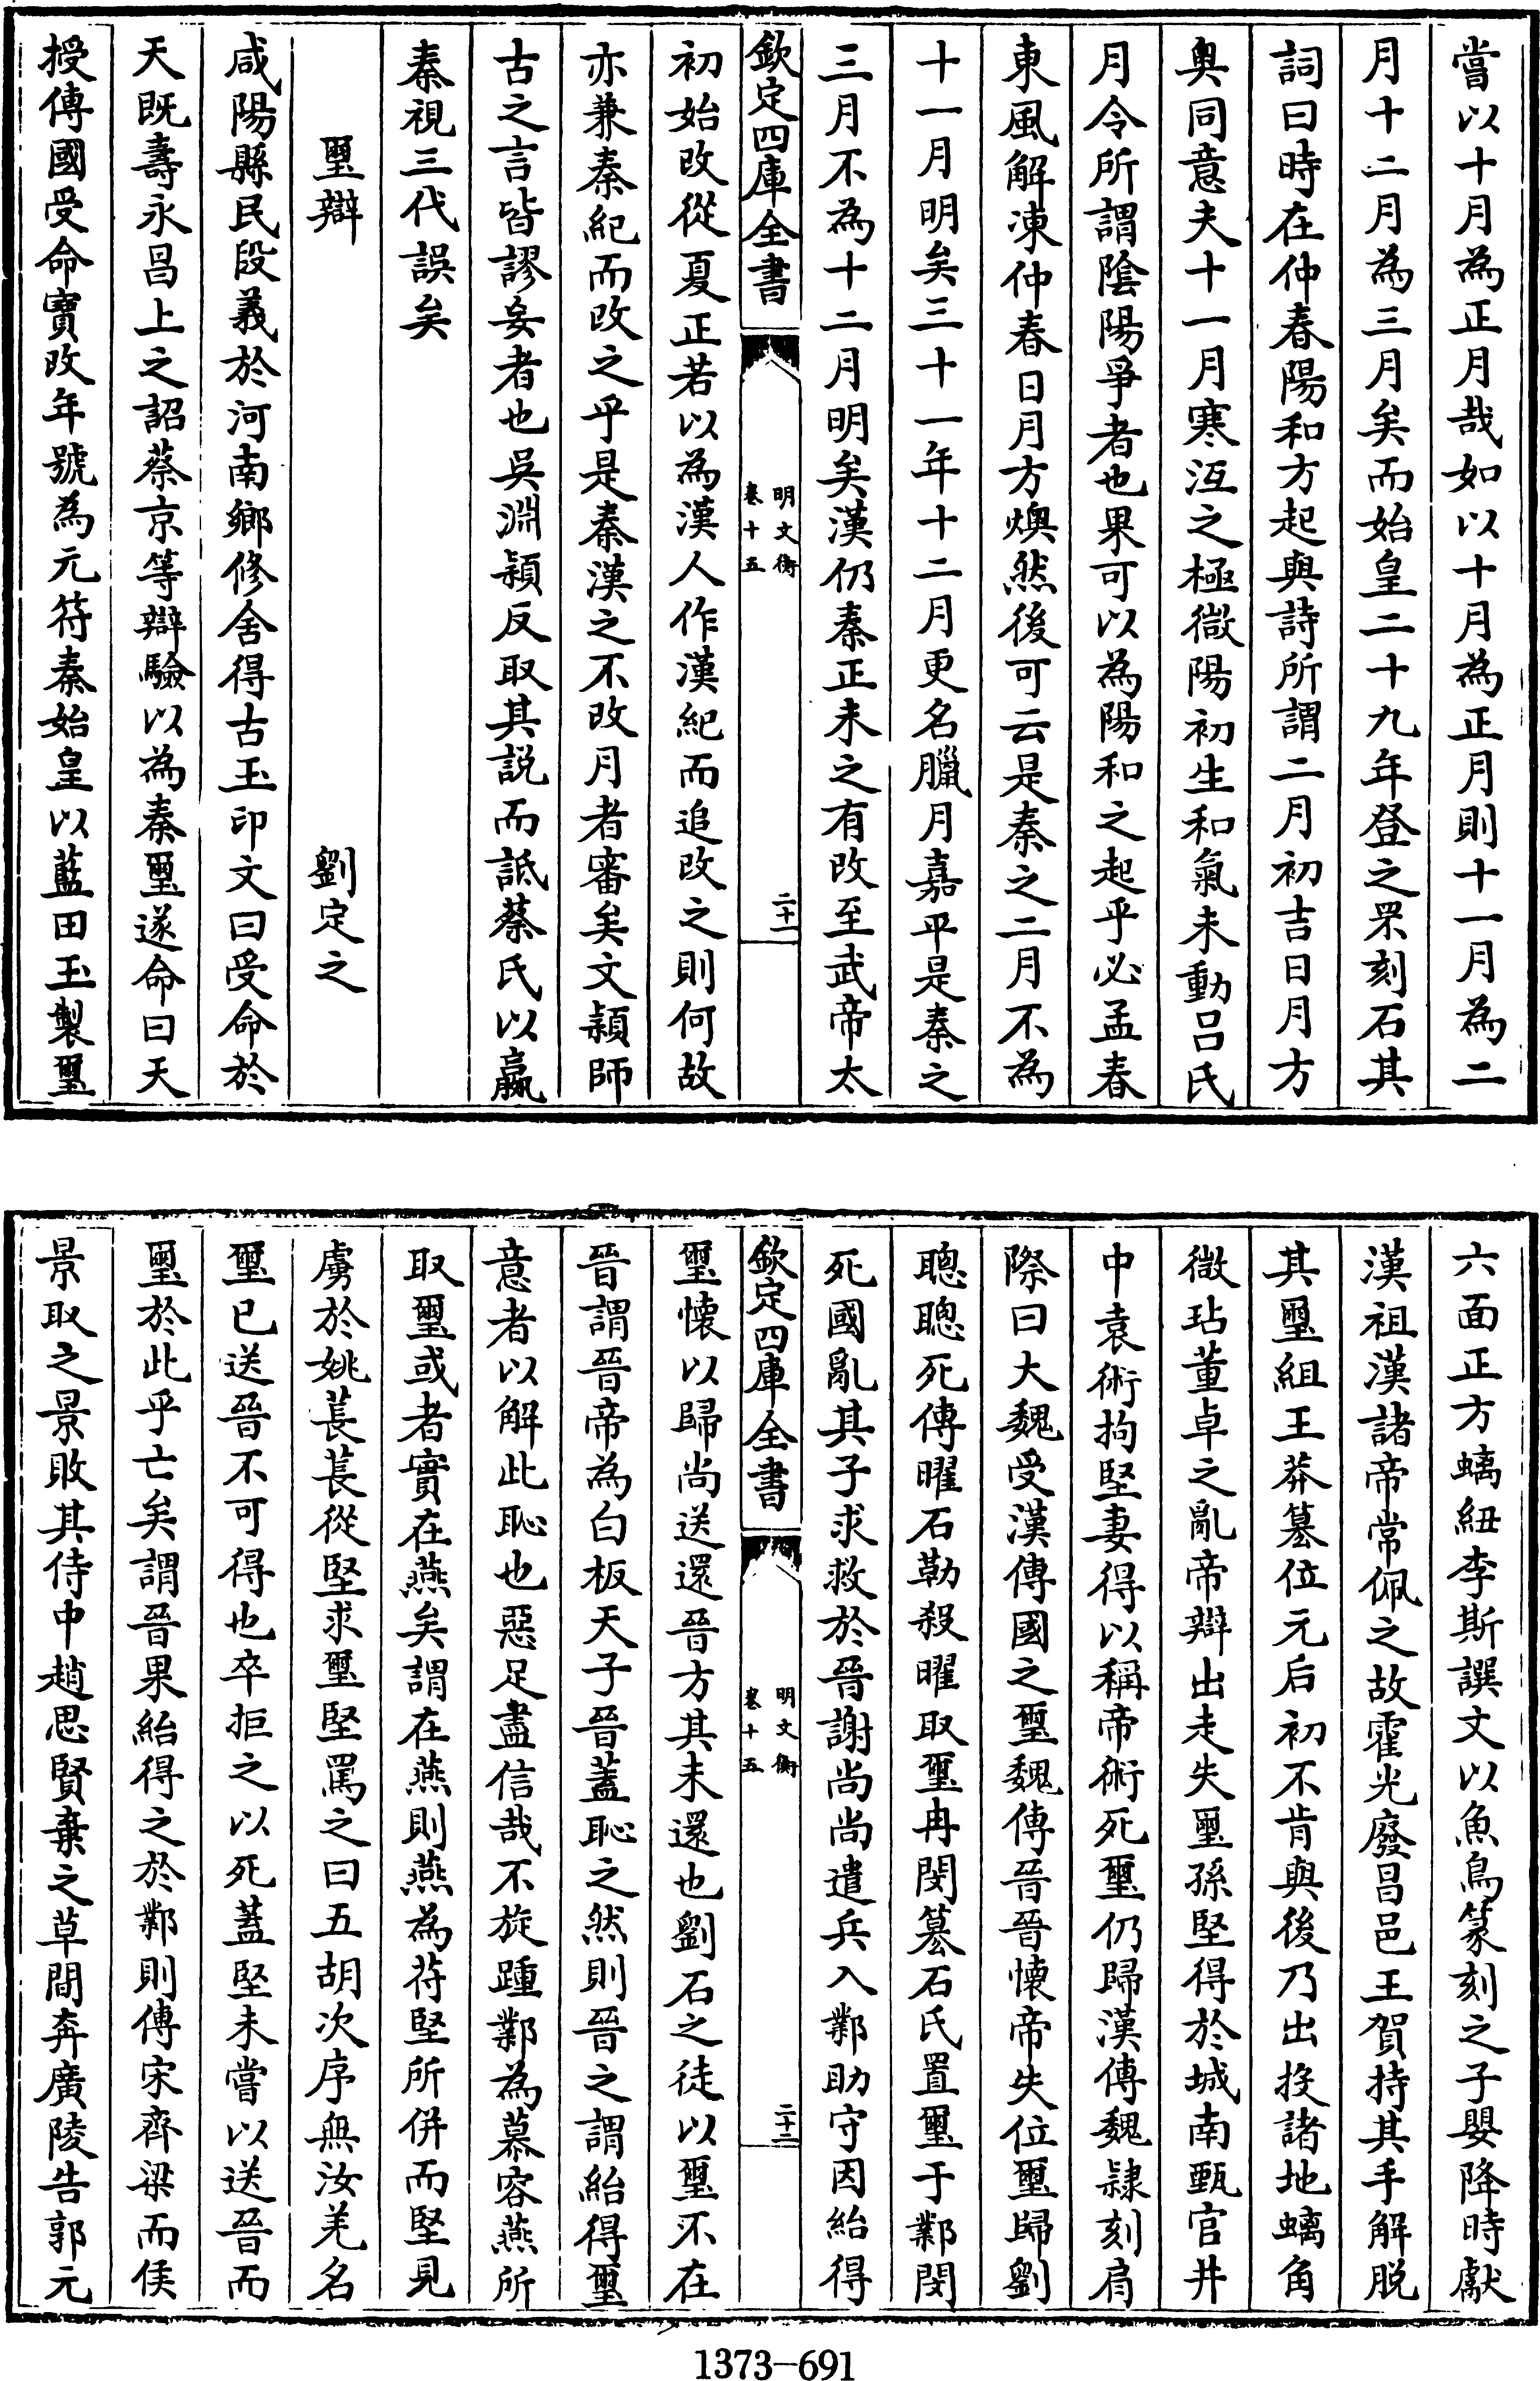 嘗以十月為正月哉如以十月為正月則十一月為二
月十二月為三月矣而始皇二十九年登之罘刻石其
詞曰時在仲春陽和方起與詩所謂二月初吉日月方
奥同意夫十一月寒沍之極微陽初生和氣未動吕氏
月令所謂陰陽爭者也果可以為陽和之起乎必孟春
東風解凍仲春日月方燠然後可云是秦之二月不為
十一月明矣三十一年十二月更名臘月嘉平是秦之
三月不為十二月明矣漢仍秦正未之有改至武帝太
欽定四庫全書
明文衡
卷十五
二十一
初始改從夏正若以為漢人作漢紀而追改之則何故
亦兼秦紀而改之乎是秦漢之不改月者審矣文穎師
古之言皆謬妄者也吳淵穎反取其説而詆蔡氏以嬴
秦視三代誤矣
璽辯
劉定之
咸陽縣民段義於河南鄉修舍得古玉印文曰受命於
天既壽永昌上之詔蔡京等辯驗以為秦璽遂命曰天
授傳國受命寶改年號為元符秦始皇以藍田玉製璽
六面正方螭紐李斯譔文以魚鳥篆刻之子嬰降時獻
漢祖漢諸帝常佩之故霍光廢昌邑王賀持其手解脱
其璽組王莽簒位元后初不肯與後乃出投諸地螭角
微玷董卓之亂帝辯出走失璽孫堅得於城南甄官井
中袁術拘堅妻得以稱帝術死璽仍歸漢傳魏隷刻肩
際曰大魏受漢傳國之璽魏傳晉晉懷帝失位璽歸劉
聰聰死傳曜石勒殺曜取璽冉閔簒石氏置璽于鄴閔
死國亂其子求救於晉謝尚尚遣兵入鄴助守因紿得
欽定四庫全書
明文衡
卷十五
二十二
璽懷以歸尚送還晉方其未還也劉石之徒以璽不在
晉謂晉帝為白板天子晉蓋恥之然則晉之謂紿得璽
意者以解此恥也惡足盡信哉不旋踵鄴為慕容燕所
取璽或者實在燕矣謂在燕則燕為苻堅所併而堅見
虜於姚萇萇從堅求璽堅罵之曰五胡次序無汝羌名
璽已送晉不可得也卒拒之以死蓋堅未嘗以送晉而
璽於此乎亡矣謂晉果紿得之於鄴則傳宋齊梁而侯
景取之景敗其侍中趙思賢棄之草間奔廣陵告郭元
1373—691